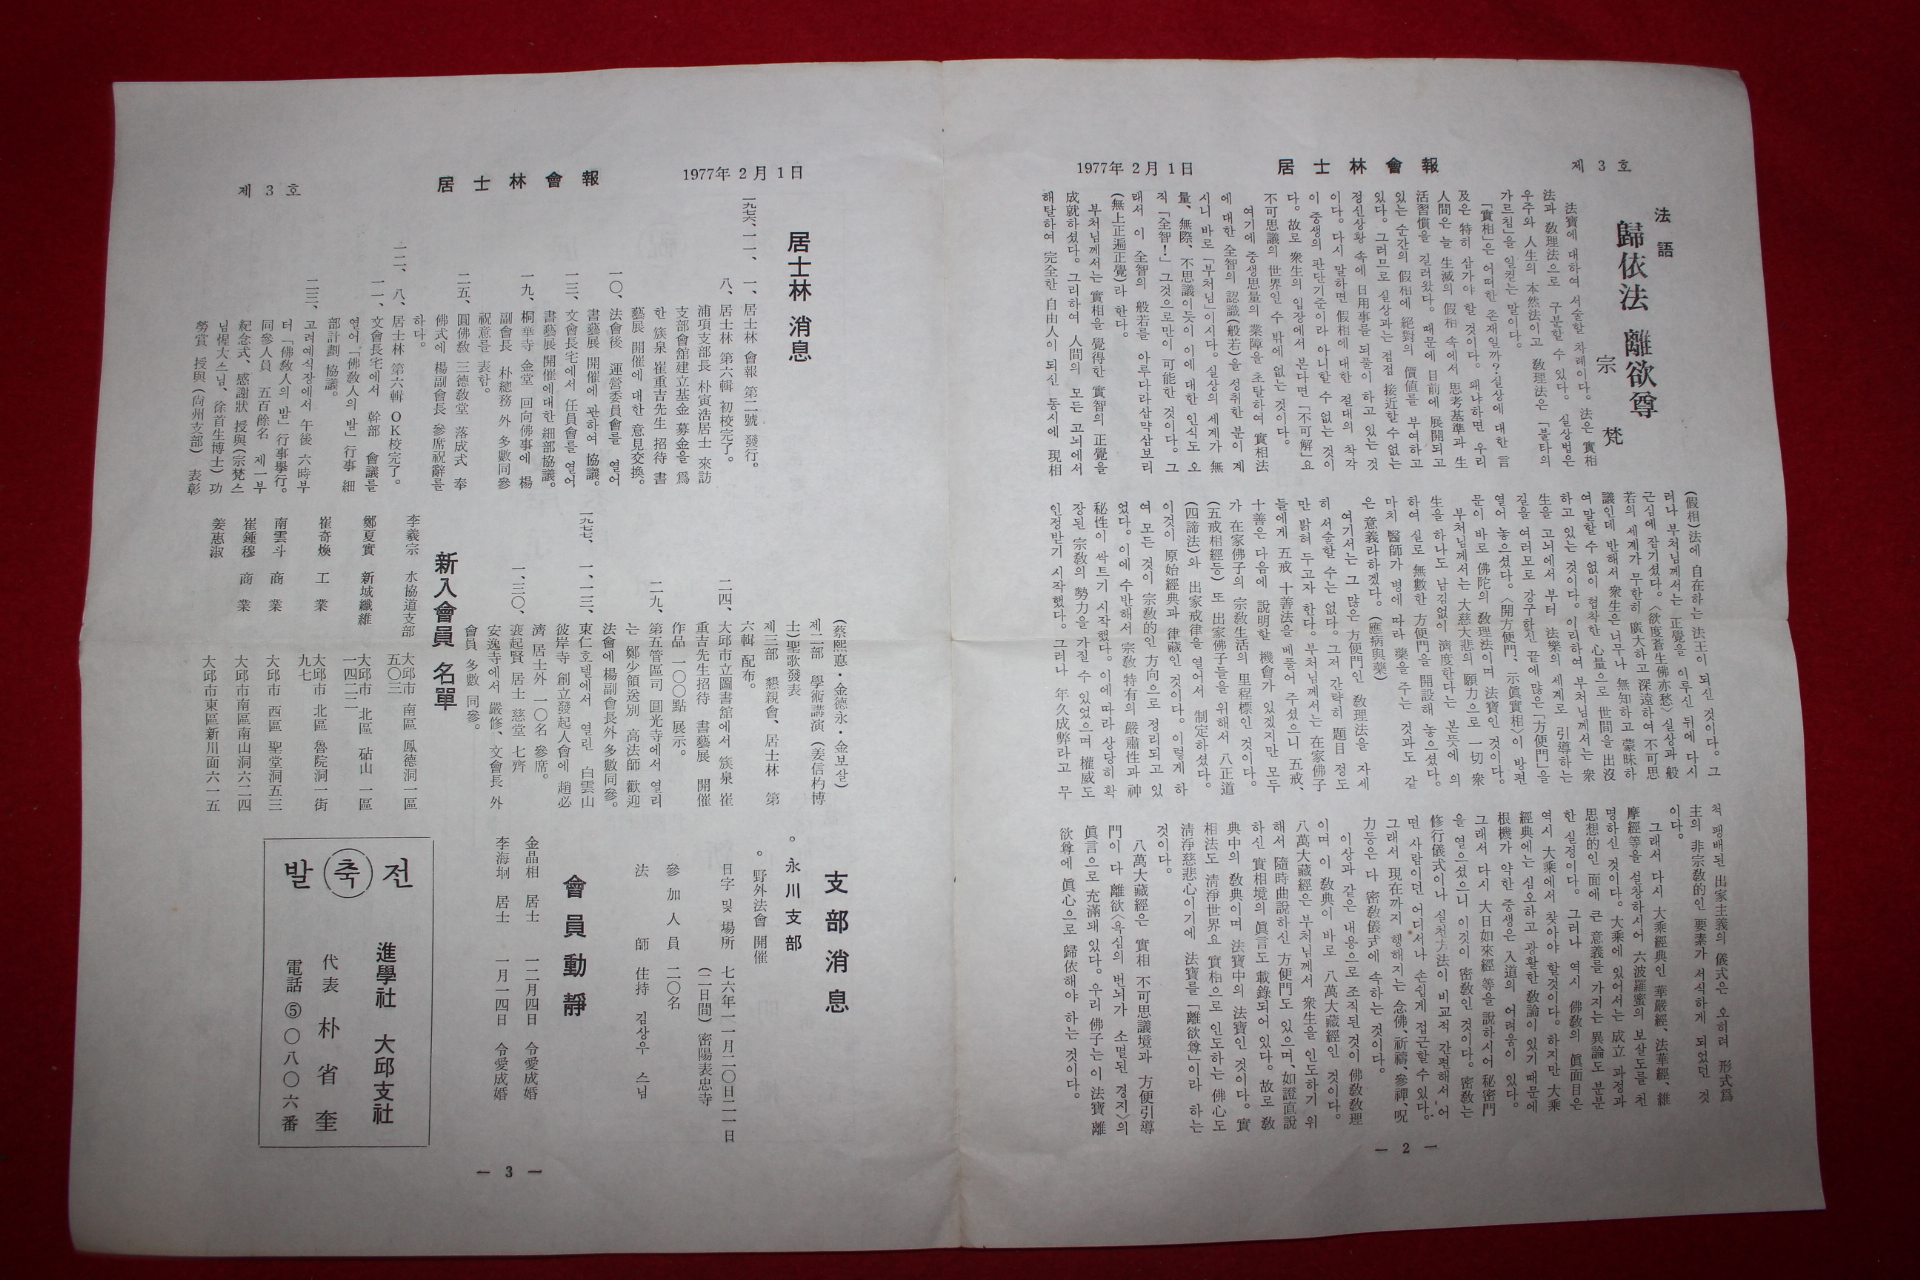 제 3 호
居 士 林 會 報
1977年 2 月 1 日
法 語
歸依法 離欲尊
宗 梵
法寶에 대하여 서술할 차례이다。 法은 實相
法과 敎理法으로 구분할 수 있다。 실상법은
우주와 人生의 本然法이고 敎理法은 「불타의
가르침」을 일컫는 말이다。
「實相」은 어떠한 존재일까? 실상에 대한 言
及은 특히 삼가야 할 것이다。 왜냐하면 우리
人間은 늘 生滅의 假相 속에서 思考基準과 生
活習慣을 길러왔다。 때문에 目前에 展開되고
있는 순간의 假相에 絕對의 價値를 부여하고
있다。 그러므로 실상과는 점점 接近할수 없는
정신상황 속에 日用事를 되풀이 하고 있는 것
이다。 다시 말하면 假相에 대한 절대의 착각
이 중생의 판단기준이라 아니할 수 없는 것이
다。 故로 衆生의 입장에서 본다면 「不可解」요
不可思議의 世界일 수 밖에 없는 것이다。
여기에 중생思量의 業障을 초탈하여 實相法
에 대한 全智의 認識(般若)을 정취한 분이 계
시니 바로 「부처님」이시다。 실상의 세계가 無
量、無際、不思議이듯이 이에 대한 인식도 오
직 「全智!」 그것으로만이 可能한 것이다。 그
래서 이 全智의 般若를 아루다라삼약삼보리
(無上正遍正覺)라 한다。
부처님께서는 實相을 覺得한 實智의 正覺을
成就하셨다。 그리하여 人間의 모든 고뇌에서
해탈하여 完全한 自由人이 되신 동시에 現相
(假相)法에 自在하는 法王이 되신 것이다。 그
러나 부처님께서는 正覺을 이루신 뒤에 다시
근심에 잠기셨다。〈欲度蒼生佛亦愁〉 실상과 般
若의 세계가 무한히 廣大하고 深遠하여 不可思
議인데 반해서 衆生은 너무나 無知하고 蒙昧하
여 말할 수 없이 협착한 心量으로 世間을 出沒
하고 있는 것이다。 이리하여 부처님께서는 衆
生을 고뇌에서 부터 法樂의 세계로 引導하는
길을 여러모로 강구하신 끝에 많은 「方便門」을
열어 놓으셨다。〈開方便門、示眞實相〉이 방편
문이 바로 佛陀의 敎理法이며 法寶인 것이다。
부처님께서는 大慈大悲의 願力으로 一切 衆
生을 하나도 남김없이 濟度한다는 본뜻에 의
하여 실로 無數한 方便門을 開設해 놓으셨다。
마치 醫師가 병에 따라 藥을 주는 것과도 같
은 意義라하겠다。(應病與藥)
여기서는 그 많은 方便門인 敎理法을 자세
히 서술할 수는 없다。 그저 간략히 題目 정도
만 밝혀 두고자 한다。 부처님께서는 在家佛子
들에게 五戒 十善法을 베풀어 주셨으니 五戒、
十善은 다음에 說明한 機會가 있겠지만 모두
가 在家佛子의 宗敎生活의 里程標인 것이다。
(五戒相經등) 또 出家佛子들을 위해서 八正道
(四諦法)와 出家戒律을 열어서 制定하셨다。
이것이 原始經典과 律藏인 것이다。 이렇게 하
여 모든 것이 宗敎的인 方向으로 정리되고 있
었다。 이에 수반해서 宗敎 特有의 嚴肅性과 神
秘性이 싹트기 시작했다。 이에 따라 상당히 확
장된 宗敎의 勢力을 가질 수 있었으며 權威도
인정받기 시작했다。 그러나 年久成弊라고 무
척 팽배된 出家主義의 儀式은 오히려 形式爲
主의 非宗敎的인 要素가 서식하게 되었던 것
이다。
그래서 다시 大乘經典인 華嚴經、法華經、維
摩經等을 설창하시어 六波羅蜜의 보살도를 천
명하신 것이다。 大乘에 있어서는 成立 과정과
思想的인 面에 큰 意義를 가지는 異論도 분분
한 실정이다。 그러나 역시 佛敎의 眞面目은
역시 大乘에서 찾아야 할것이다。 하지만 大乘
經典에는 심오하고 광활한 敎論이 있기 때문에
根機가 약한 중생은 入道의 어려움이 있다。
그래서 다시 大日如來經 等을 說하시어 秘密門
을 열으셨으니 이것이 密敎인 것이다。 密敎는
修行儀式이나 실천方法이 비교적 간편해서 어
떤 사람이던 어디서나 손쉽게 접근할수 있다。
그래서 現在까지 행해지는 念佛、祈禱、參禪、呪
力等은 다 密敎儀式에 속하는 것이다。
이상과 같은 내용으로 조직된 것이 佛敎敎理
이며 이 敎典이 바로 八萬大藏經인 것이다。
八萬大藏經은 부처님께서 衆生을 인도하기 위
해서 隨時曲說하신 方便門도 있으며、如證直說
하신 實相境의 眞言도 載錄되어 있다。 故로 敎
典中의 敎典이며 法寶中의 法寶인 것이다。 實
相法도 淸淨世界요 實相으로 인도하는 佛心도
淸淨慈悲心이기에 法寶를 「離欲尊」이라 하는
것이다。
八萬大藏經은 實相 不可思議境과 方便引導
門이 다 離欲〈욕심의 번뇌가 소멸된 경지〉의
眞言으로 充滿돼 있다。 우리 佛子는 이 法寶離
欲尊에 眞心으로 歸依해야 하는 것이다。
— 2 —
1977年 2 月 1 日
居 士 林 會 報
제 3 호
居士林 消息
一九七六、一一、 一、 居士林 會報 第二號 發行。
八、 居士林 第六輯 初校完了。
浦項支部長 朴寅浩居士 來訪
支部會館建立基金 募金을 爲
한 簇泉 崔重吉先生 招待 書
藝展 開催에 대한 意見交換。
一〇、 法會後 運營委員會를 열어
書藝展 開催에 관하여 協議。
一三、 文會長宅에서 任員會를 열어
書藝展 開催에대한 細部協議。
一九、 桐華寺 金堂 回向佛事에 楊
副會長 朴總務 外 多數同參
祝意를 表함。
二五、 圓佛敎 三德敎堂 落成式 奉
佛式에 楊副會長 參席祝辭를
하다。
一二、 八、 居士林 第六輯 OK校完了。
一一、 文會長宅에서 幹部 會議를
열어、「佛敎人의 밤」行事 細
部計劃 協議。
二三、 고려예식장에서 午後 六時부
터 「佛敎人의 밤」行事擧行。
同參人員 五百餘名 제一부
紀念式、感謝狀 授與(宗梵스
님 惺大스님、徐首生博士) 功
勞賞 授與(尙州支部) 表彰
(蔡熙憙·金德永·金보살)
제二部 學術講演(姜信杓博
士) 聖歌發表
제三部 懇親會、居士林 第
六輯 配布。
二四、 大邱市立圖書舘에서 簇泉 崔
重吉先生招待 書藝展 開催
作品 一〇〇點 展示。
二九、 第五管區司 圓光寺에서 열리
는 鄭少領送別 高法師 歡迎
法會에 楊副會長外多數同參。
一九七七、 一、一三、 東仁호텔에서 열린 白雲山
彼岸寺 創立發起人會에 趙必
濟 居士外 一〇名 參席。
一、三〇、 裵起賢 居士 慈堂 七齊
安逸寺에서 嚴修、文會長 外
會員 多數 同參。
新入會員 名單
李羲宗 水協道支部 大邱市 南區 鳳德洞一區 五〇三
鄭夏實 新域纖維 大邱市 北區 砧山 一區 一四二二
崔奇煥 工 業 大邱市 北區 魯院洞一街 九七
南雲斗 商 業 大邱市 西區 聖堂洞五三
崔鍾穆 商 業 大邱市南區南山洞六二四
姜惠淑 大邱市東區新川面六一五
支 部 消 息
○ 永 川 支 部
○ 野外法會 開催
日字 및 場所 七六年一一月二〇日二一日
(二日間) 密陽表忠寺
參 加 人 員 二〇名
法 師 住持 김상우 스님
會 員 動 靜
金晶相 居士 一二月四日 令愛成婚
李海坰 居士 一月一四日 令愛成婚
축
발 전
進學社 大邱支社
代表 朴 省 奎
電話 ⑤ 〇八〇六番
— 3 —